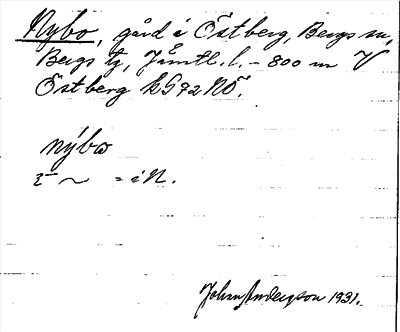 Nybo, gård i Östberg, Bergs sn,
Bergs tg, Jämtl. l. – 800 m V
Östberg kG 92 NÖ.
nýbo
= i N.
Johan Anderson 1931.